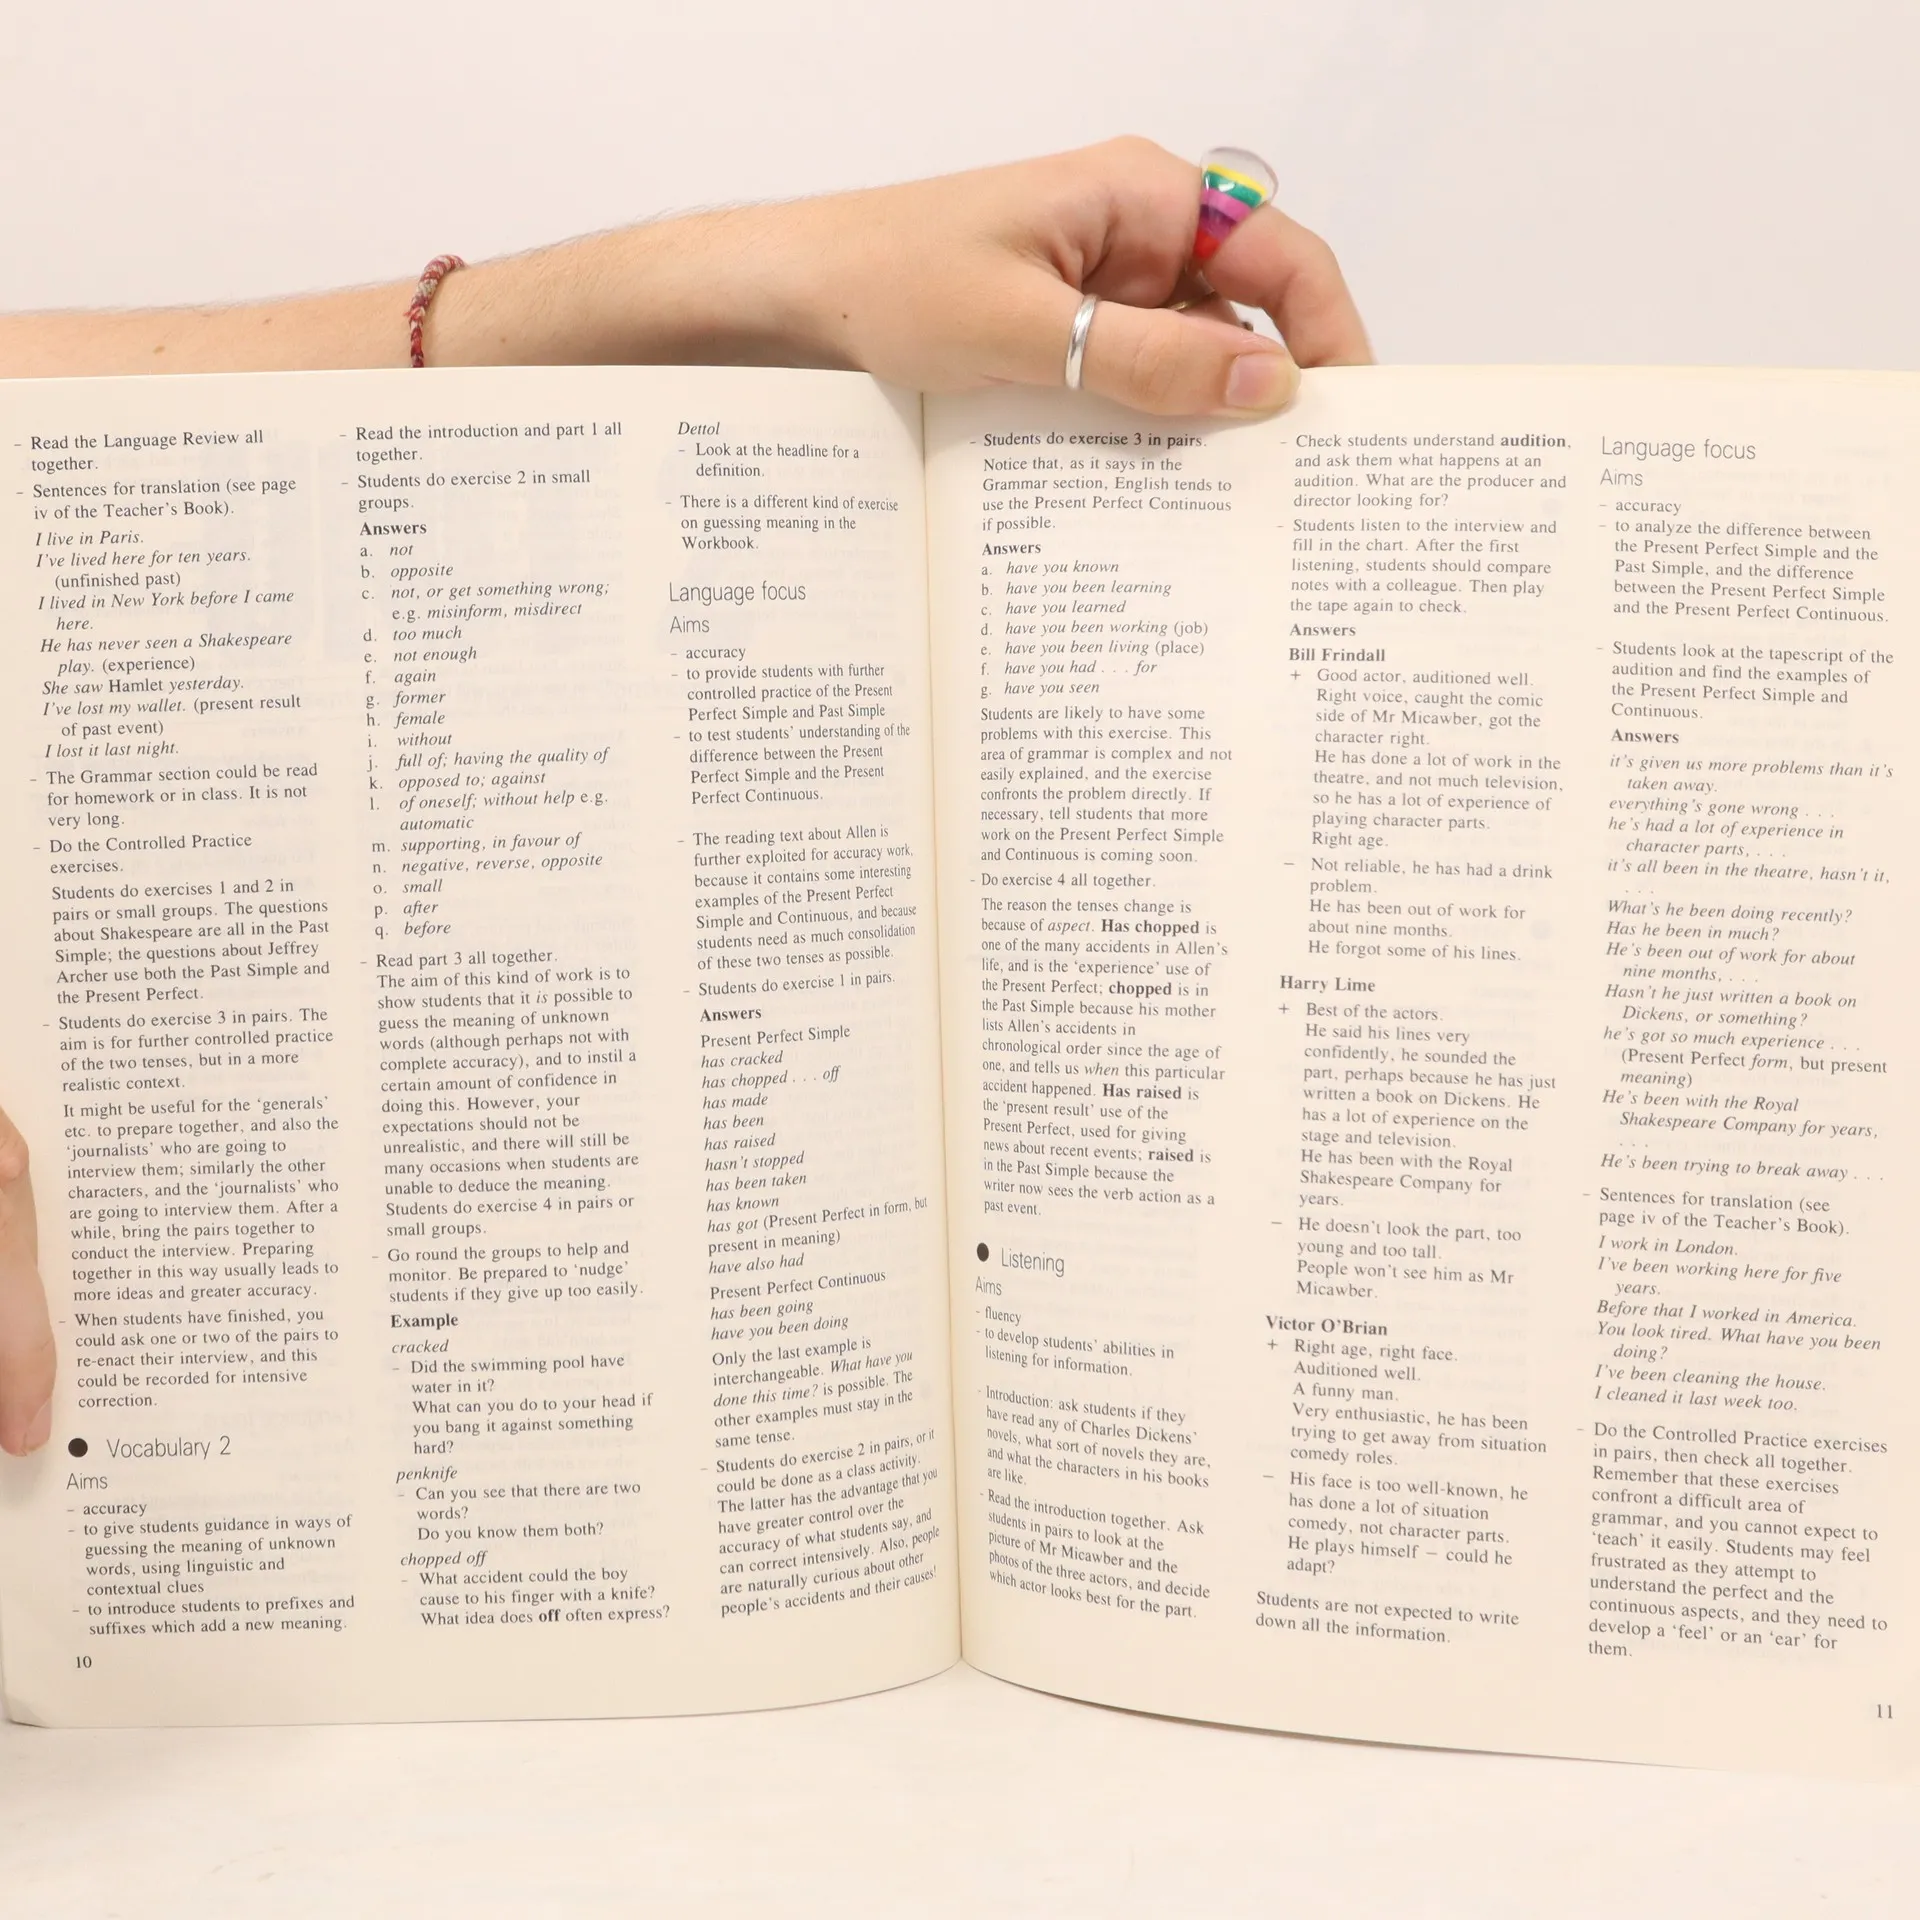 – Read the Language Review all
together.
– Sentences for translation (see page
iv of the Teacher's Book).
I live in Paris.
I've lived here for ten years.
(unfinished past)
I lived in New York before I came
here.
He has never seen a Shakespeare
play. (experience)
She saw Hamlet yesterday.
I've lost my wallet. (present result
of past event)
I lost it last night.
– The Grammar section could be read
for homework or in class. It is not
very long.
– Do the Controlled Practice
exercises.
Students do exercises 1 and 2 in
pairs or small groups. The questions
about Shakespeare are all in the Past
Simple; the questions about Jeffrey
Archer use both the Past Simple and
the Present Perfect.
– Students do exercise 3 in pairs. The
aim is for further controlled practice
of the two tenses, but in a more
realistic context.
It might be useful for the 'generals'
etc. to prepare together, and also the
'journalists' who are going to
interview them; similarly the other
characters, and the 'journalists' who
are going to interview them. After a
while, bring the pairs together to
conduct the interview. Preparing
together in this way usually leads to
more ideas and greater accuracy.
– When students have finished, you
could ask one or two of the pairs to
re-enact their interview, and this
could be recorded for intensive
correction.
● Vocabulary 2
Aims
– accuracy
– to give students guidance in ways of
guessing the meaning of unknown
words, using linguistic and
contextual clues
– to introduce students to prefixes and
suffixes which add a new meaning.
10
– Read the introduction and part 1 all
together.
– Students do exercise 2 in small
groups.
Answers
a. not
b. opposite
c. not, or get something wrong;
e.g. misinform, misdirect
d. too much
e. not enough
f. again
g. former
h. female
i. without
j. full of; having the quality of
k. opposed to; against
l. of oneself; without help e.g.
automatic
m. supporting, in favour of
n. negative, reverse, opposite
o. small
p. after
q. before
– Read part 3 all together.
The aim of this kind of work is to
show students that it is possible to
guess the meaning of unknown
words (although perhaps not with
complete accuracy), and to instil a
certain amount of confidence in
doing this. However, your
expectations should not be
unrealistic, and there will still be
many occasions when students are
unable to deduce the meaning.
Students do exercise 4 in pairs or
small groups.
– Go round the groups to help and
monitor. Be prepared to 'nudge'
students if they give up too easily.
Example
cracked
– Did the swimming pool have
water in it?
What can you do to your head if
you bang it against something
hard?
penknife
– Can you see that there are two
words?
Do you know them both?
chopped off
– What accident could the boy
cause to his finger with a knife?
What idea does off often express?
Dettol
– Look at the headline for a
definition.
– There is a different kind of exercise
on guessing meaning in the
Workbook.
Language focus
Aims
– accuracy
– to provide students with further
controlled practice of the Present
Perfect Simple and Past Simple
– to test students' understanding of the
difference between the Present
Perfect Simple and the Present
Perfect Continuous.
– The reading text about Allen is
further exploited for accuracy work,
because it contains some interesting
examples of the Present Perfect
Simple and Continuous, and because
students need as much consolidation
of these two tenses as possible.
– Students do exercise 1 in pairs.
Answers
Present Perfect Simple
has cracked
has chopped . . . off
has made
has been
has raised
hasn't stopped
has been taken
has known
has got (Present Perfect in form, but
present in meaning)
have also had
Present Perfect Continuous
has been going
have you been doing
Only the last example is
interchangeable. What have you
done this time? is possible. The
other examples must stay in the
same tense.
– Students do exercise 2 in pairs, or it
could be done as a class activity.
The latter has the advantage that you
have greater control over the
accuracy of what students say, and
can correct intensively. Also, people
are naturally curious about other
people's accidents and their causes!
– Students do exercise 3 in pairs.
Notice that, as it says in the
Grammar section, English tends to
use the Present Perfect Continuous
if possible.
Answers
a. have you known
b. have you been learning
c. have you learned
d. have you been working (job)
e. have you been living (place)
f. have you had . . . for
g. have you seen
Students are likely to have some
problems with this exercise. This
area of grammar is complex and not
easily explained, and the exercise
confronts the problem directly. If
necessary, tell students that more
work on the Present Perfect Simple
and Continuous is coming soon.
– Do exercise 4 all together.
The reason the tenses change is
because of aspect. Has chopped is
one of the many accidents in Allen's
life, and is the 'experience' use of
the Present Perfect; chopped is in
the Past Simple because his mother
lists Allen's accidents in
chronological order since the age of
one, and tells us when this particular
accident happened. Has raised is
the 'present result' use of the
Present Perfect, used for giving
news about recent events; raised is
in the Past Simple because the
writer now sees the verb action as a
past event.
● Listening
Aims
– fluency
– to develop students' abilities in
listening for information.
– Introduction: ask students if they
have read any of Charles Dickens'
novels, what sort of novels they are,
and what the characters in his books
are like.
– Read the introduction together. Ask
students in pairs to look at the
picture of Mr Micawber and the
photos of the three actors, and decide
which actor looks best for the part.
– Check students understand audition,
and ask them what happens at an
audition. What are the producer and
director looking for?
– Students listen to the interview and
fill in the chart. After the first
listening, students should compare
notes with a colleague. Then play
the tape again to check.
Answers
Bill Frindall
+ Good actor, auditioned well.
Right voice, caught the comic
side of Mr Micawber, got the
character right.
He has done a lot of work in the
theatre, and not much television,
so he has a lot of experience of
playing character parts.
Right age.
– Not reliable, he has had a drink
problem.
He has been out of work for
about nine months.
He forgot some of his lines.
Harry Lime
+ Best of the actors.
He said his lines very
confidently, he sounded the
part, perhaps because he has just
written a book on Dickens. He
has a lot of experience on the
stage and television.
He has been with the Royal
Shakespeare Company for
years.
– He doesn't look the part, too
young and too tall.
People won't see him as Mr
Micawber.
Victor O'Brian
+ Right age, right face.
Auditioned well.
A funny man.
Very enthusiastic, he has been
trying to get away from situation
comedy roles.
– His face is too well-known, he
has done a lot of situation
comedy, not character parts.
He plays himself – could he
adapt?
Students are not expected to write
down all the information.
Language focus
Aims
– accuracy
– to analyze the difference between
the Present Perfect Simple and the
Past Simple, and the difference
between the Present Perfect Simple
and the Present Perfect Continuous.
– Students look at the tapescript of the
audition and find the examples of
the Present Perfect Simple and
Continuous.
Answers
it's given us more problems than it's
taken away.
everything's gone wrong . . .
he's had a lot of experience in
character parts, . . .
it's all been in the theatre, hasn't it,
. . .
What's he been doing recently?
Has he been in much?
He's been out of work for about
nine months, . . .
Hasn't he just written a book on
Dickens, or something?
he's got so much experience . . .
(Present Perfect form, but present
meaning)
He's been with the Royal
Shakespeare Company for years,
. . .
He's been trying to break away . . .
– Sentences for translation (see
page iv of the Teacher's Book).
I work in London.
I've been working here for five
years.
Before that I worked in America.
You look tired. What have you been
doing?
I've been cleaning the house.
I cleaned it last week too.
– Do the Controlled Practice exercises
in pairs, then check all together.
Remember that these exercises
confront a difficult area of
grammar, and you cannot expect to
'teach' it easily. Students may feel
frustrated as they attempt to
understand the perfect and the
continuous aspects, and they need to
develop a 'feel' or an 'ear' for
them.
11